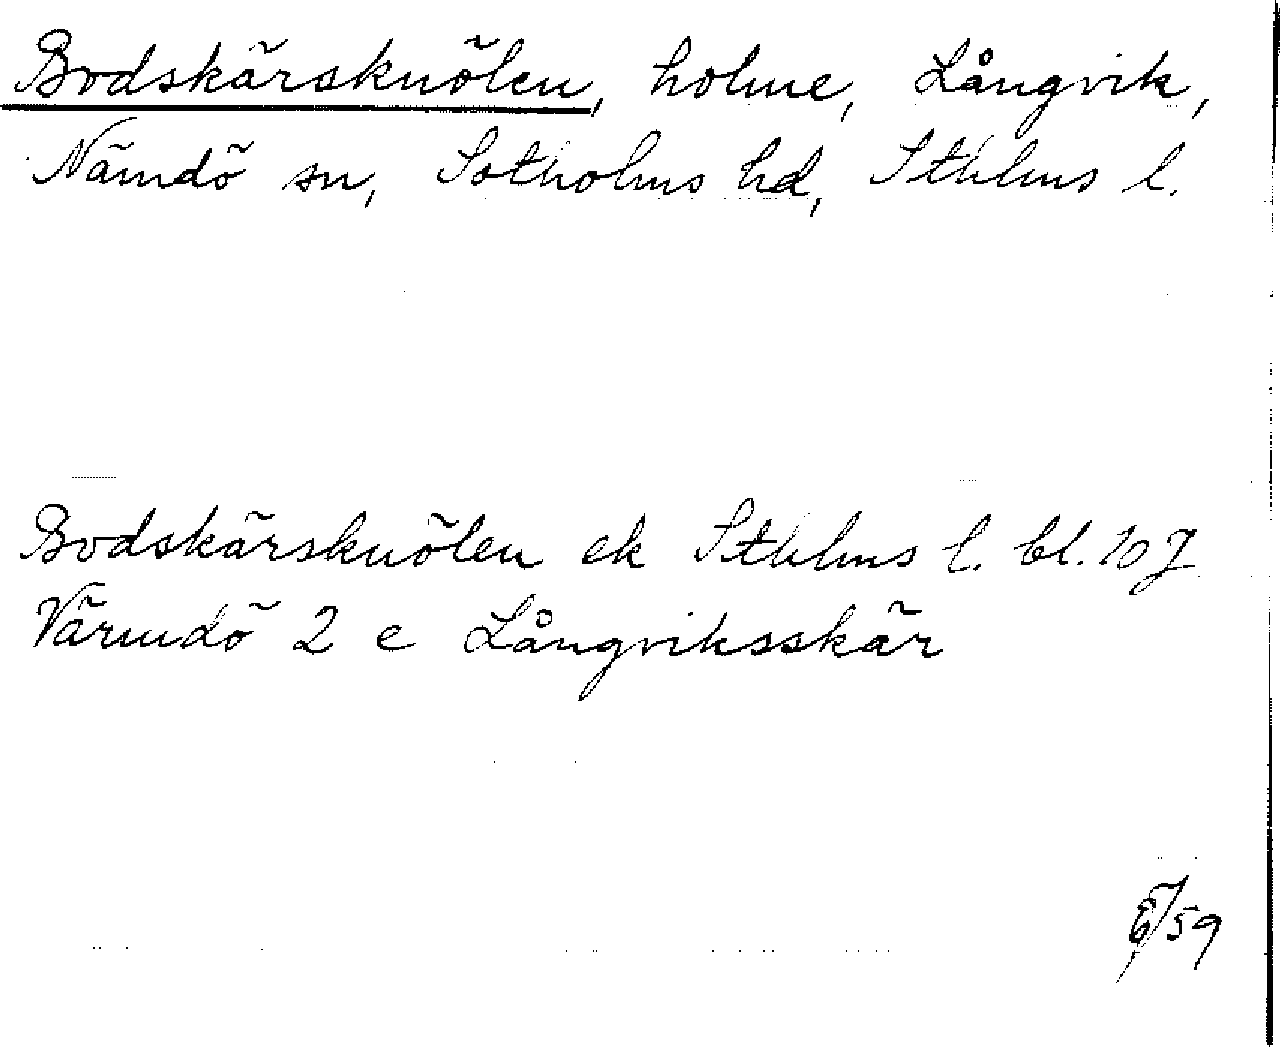 Bodskärsknölen, holme, Långvik,
Nämdö sn, Sotholms hd, Sthlms l.
Bodskärsknölen ek Sthlms l. bl. 107
Värmdö 2 e Långviksskär
/59